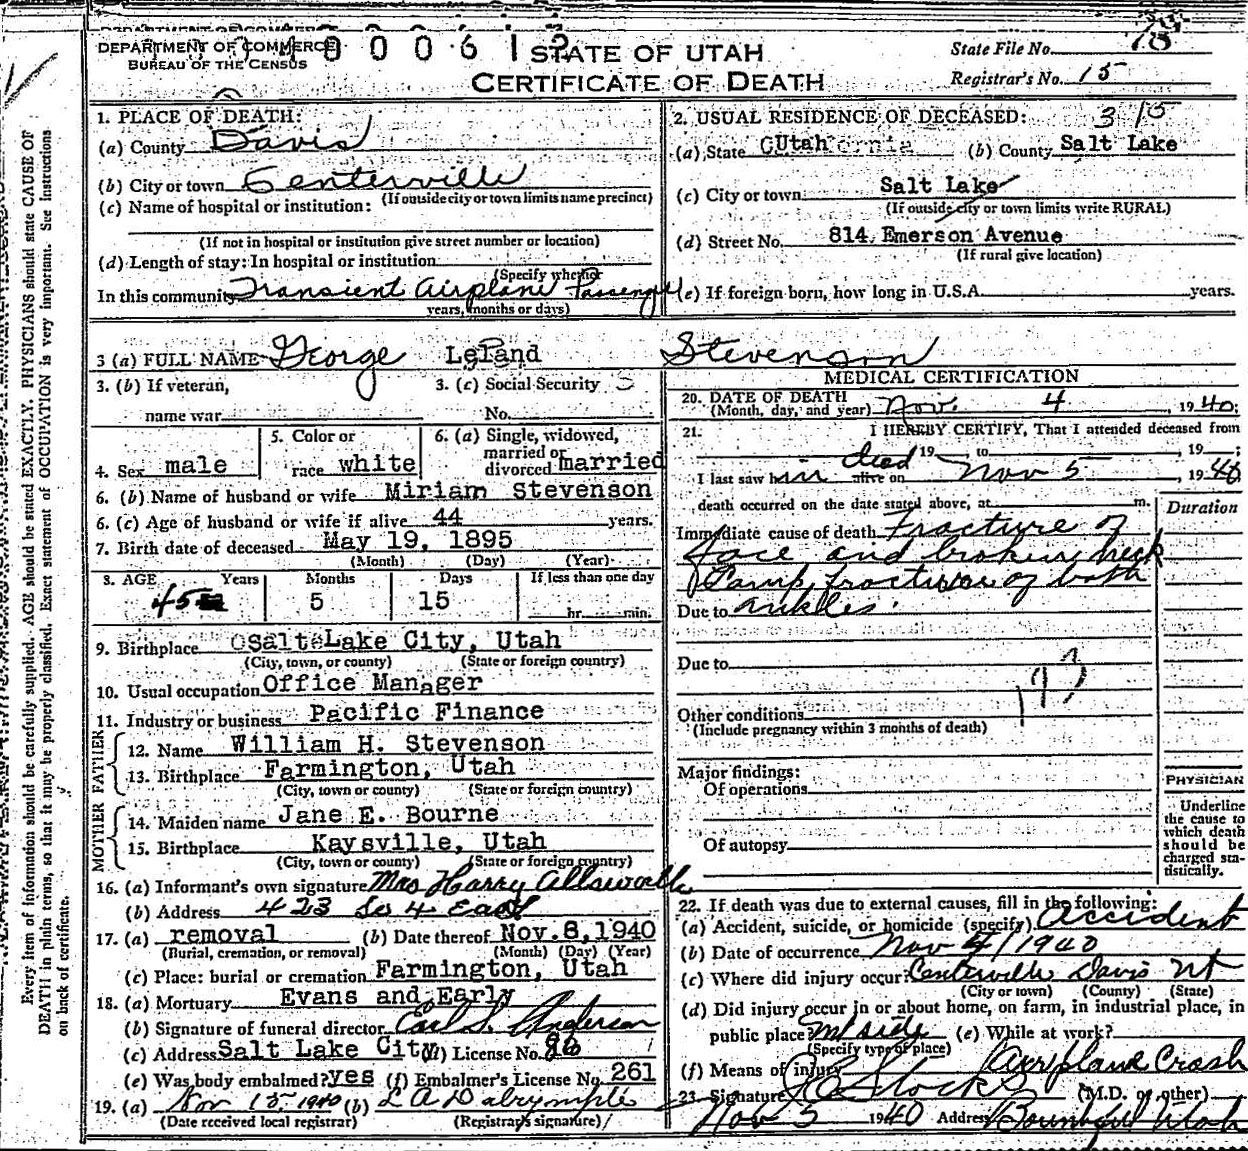 DEPARTMENT OF COMMERCE
BUREAU OF THE CENSUS
STATE OF UTAH
CERTIFICATE OF DEATH
State File No. 78
Registrar's No. 15
1. PLACE OF DEATH:
(a) County Davis
(b) City or town Centerville
(If outside city or town limits name precinct)
(c) Name of hospital or institution:
(If not in hospital or institution give street number or location)
(d) Length of stay: In hospital or institution
(Specify whether
In this community Transient Airplane Passenger
years, months or days)
2. USUAL RESIDENCE OF DECEASED: 3 15
(a) State Utah (b) County Salt Lake
(c) City or town Salt Lake
(If outside city or town limits write RURAL)
(d) Street No. 814 Emerson Avenue
(If rural give location)
(e) If foreign born, how long in U.S.A. years.
3 (a) FULL NAME George Leland Stevenson
3. (b) If veteran,
name war
3. (c) Social Security
No.
4. Sex male
5. Color or
race white
6. (a) Single, widowed,
married or
divorced married
6. (b) Name of husband or wife Miriam Stevenson
6. (c) Age of husband or wife if alive 44 years.
7. Birth date of deceased May 19, 1895
(Month) (Day) (Year)
8. AGE Years Months Days If less than one day
45 5 15 hr. min.
9. Birthplace Salt Lake City, Utah
(City, town, or county) (State or foreign country)
10. Usual occupation Office Manager
11. Industry or business Pacific Finance
FATHER
12. Name William H. Stevenson
13. Birthplace Farmington, Utah
(City, town or county) (State or foreign country)
MOTHER
14. Maiden name Jane E. Bourne
15. Birthplace Kaysville, Utah
(City, town or county) (State or foreign country)
16. (a) Informant's own signature Mrs Harry Allsworth
(b) Address 423 So 4 East
17. (a) removal (b) Date thereof Nov. 8, 1940
(Burial, cremation, or removal) (Month) (Day) (Year)
(c) Place: burial or cremation Farmington, Utah
18. (a) Mortuary Evans and Early
(b) Signature of funeral director Earl S. Anderson
(c) Address Salt Lake City (d) License No. 26
(e) Was body embalmed? yes (f) Embalmer's License No. 261
19. (a) Nov 15, 1940 (b) L A Dalrymple
(Date received local registrar) (Registrar's signature)
MEDICAL CERTIFICATION
20. DATE OF DEATH
(Month, day, and year) Nov. 4, 1940;
21. I HEREBY CERTIFY, That I attended deceased from
19 , to , 19 ;
I last saw him died alive on Nov 5, 1940
death occurred on the date stated above, at m.
Duration
Immediate cause of death Fracture of
face and broken neck
Comp. fractures of both
Due to ankles.
Due to
Other conditions
(Include pregnancy within 3 months of death)
Major findings:
Of operations
Of autopsy
PHYSICIAN
Underline
the cause to
which death
should be
charged sta-
tistically.
22. If death was due to external causes, fill in the following:
(a) Accident, suicide, or homicide (specify) Accident
(b) Date of occurrence Nov 4/1940
(c) Where did injury occur? Centerville Davis Ut
(City or town) (County) (State)
(d) Did injury occur in or about home, on farm, in industrial place, in
public place? Mt side (e) While at work?
(Specify type of place)
(f) Means of injury Airplane Crash
23. Signature J C Stocks (M.D. or other)
Nov 5 1940 Address Bountiful Utah
Every item of information should be carefully supplied. AGE should be stated EXACTLY. PHYSICIANS should state CAUSE OF
DEATH in plain terms, so that it may be properly classified. Exact statement of OCCUPATION is very important. See instructions
on back of certificate.